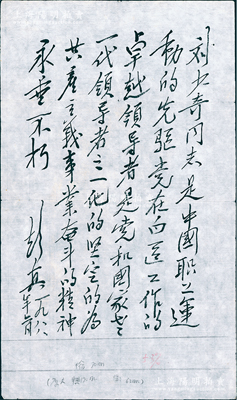 刘少奇同志是中國职工運
動的先驱党在白區工作的
卓越领导者是党和國家老
一代领导者之一他的坚定的为
共産主義事業奋斗的精神
永垂不朽
彭真
一九八八年